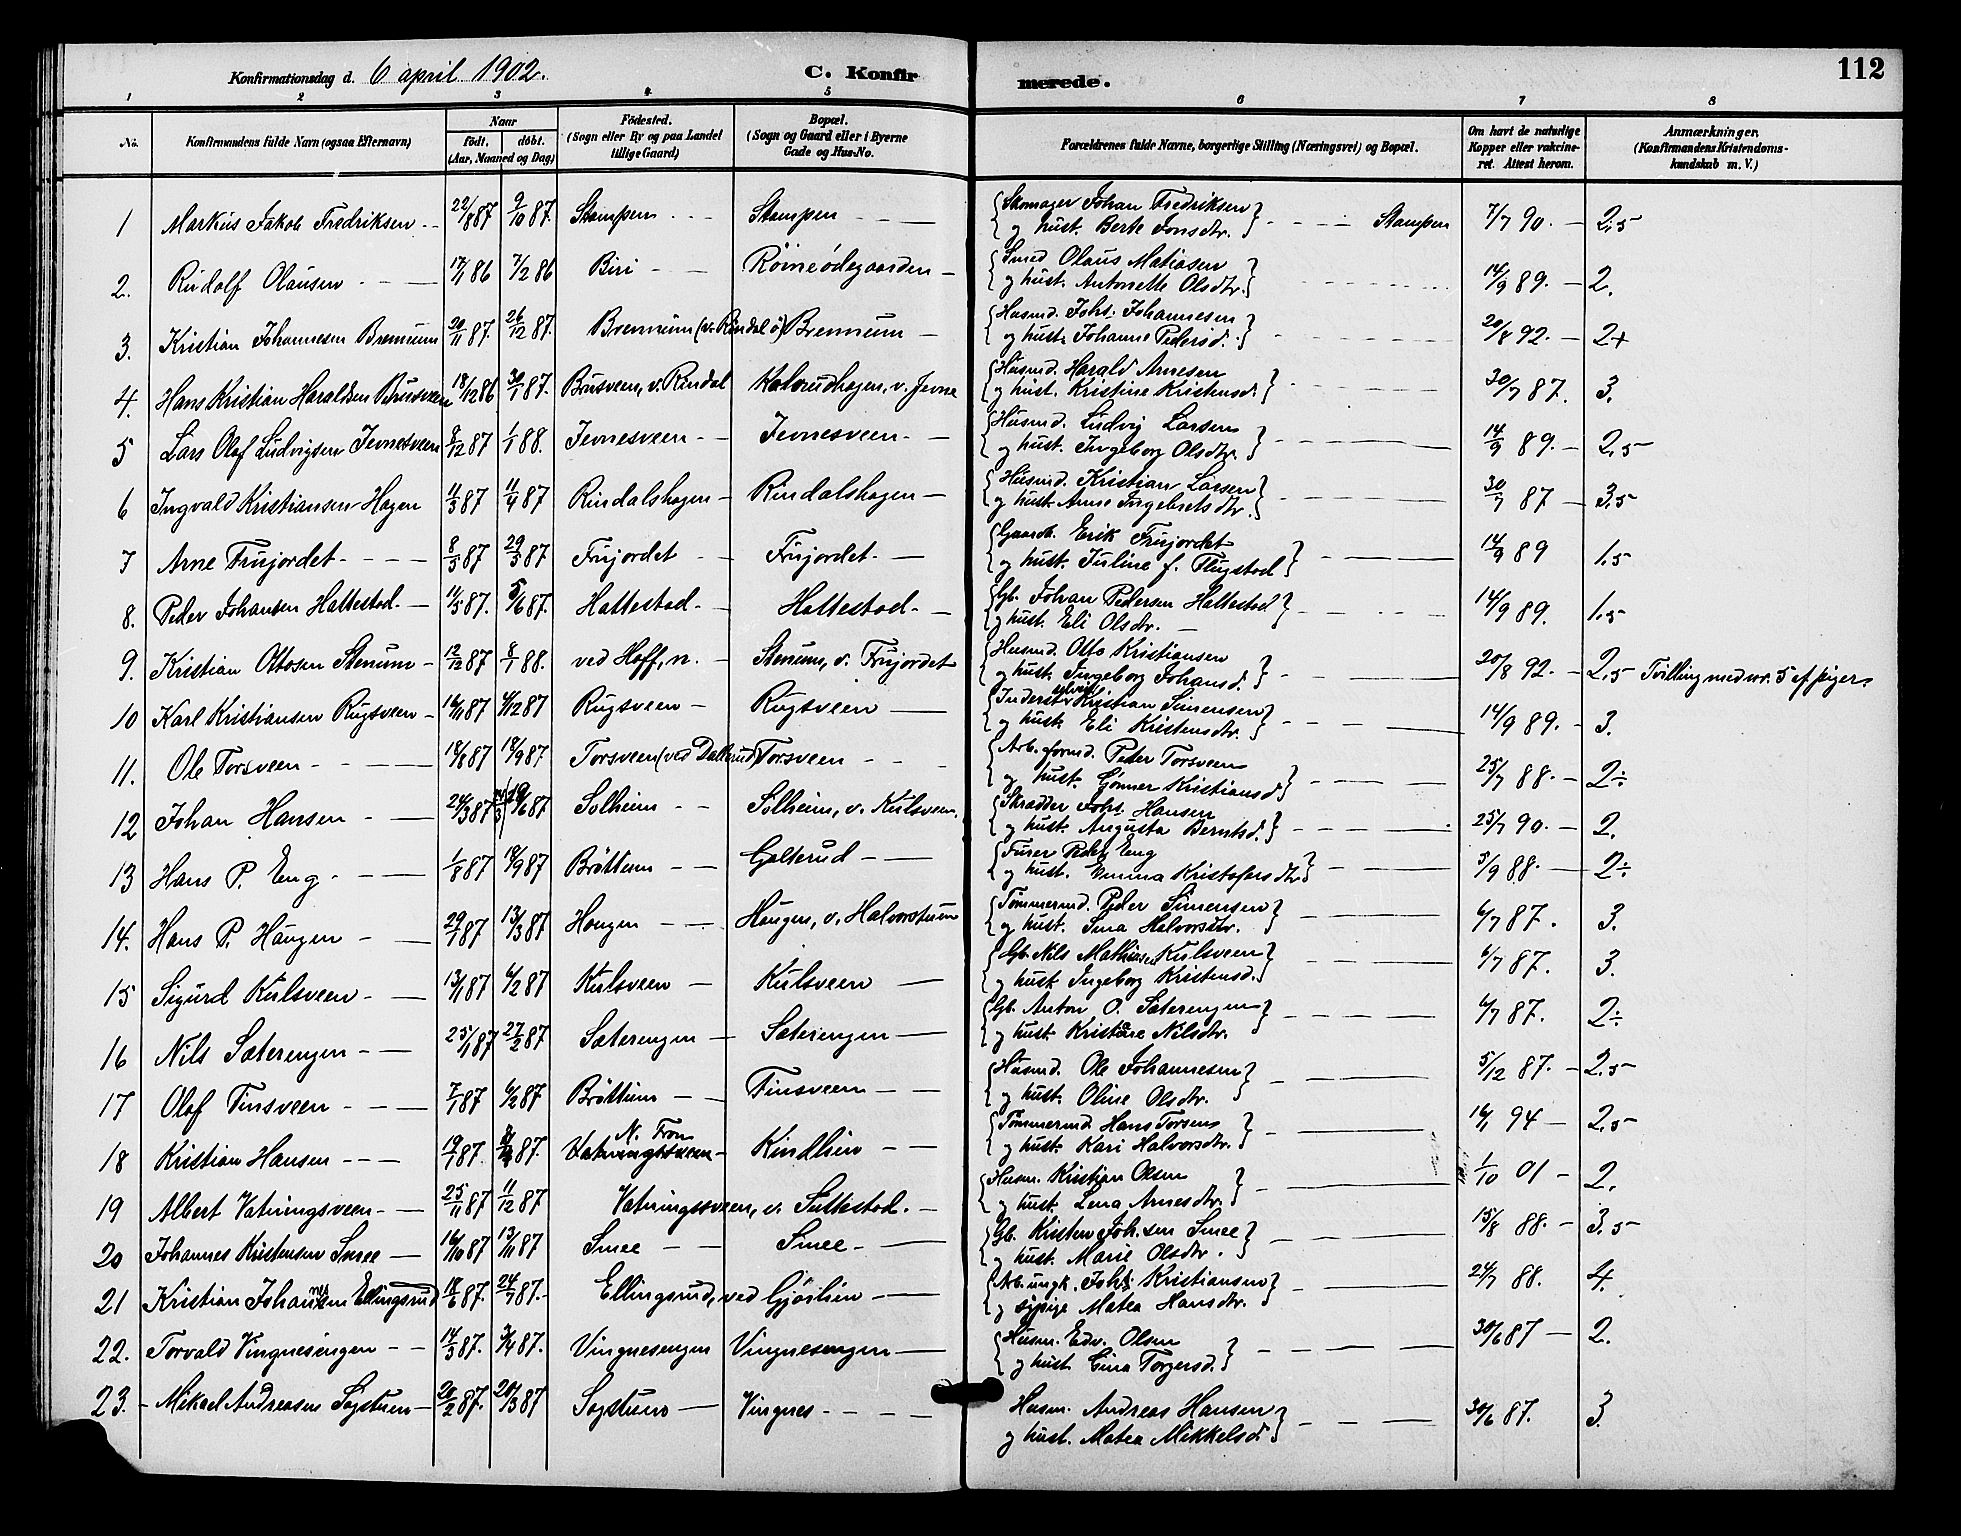 112
Konfirmationsdag d. 6 april 1902. C. Konfirmerede.
1 2 3 4 5 6 7 8
No. Konfirmandens fulde Navn (ogsaa Efternavn) Naar födt, döbt. (Aar, Maaned og Dag) Födested. (Sogn eller By og paa Landet tillige Gaard) Bopæl. (Sogn og Gaard eller i Byerne Gade og Hus-No. Forældrenes fulde Navne, borgerlige Stilling (Næringsvei) og Bopæl. Om havt de naturlige Kopper eller vakcineret. Attest herom. Anmærkninger. (Konfirmandens Kristendomskundskab m. V.)
1 Markus Jakob Fredriksen 22/8 87 9/10 87. Stampen Stampen Skomager Johan Fredriksen og hust. Berte Jonsdtr. Stampen 7/7 90. 2,5
2. Rudolf Olausen 17/11 86 7/2 86 Biri Röineödegaarden Smed Olaus Matiasen og hust. Antonette Olsdtr. 14/9 89. 2.
3. Kristian Johannesen Brennum 20/11 87. 26/12 87. Brennum (v. Rindal ö) Brennum Husmd. Johs. Johannesen og hust. Johanne Pedersd. 20/8 92. 2+
4. Hans Kristian Haraldsen Brusveen 18/12 86 30/1 87. Brusveen, v. Rindal Kalvrudhagen, v. Jevne Husmd. Harald Arnesen og hust. Kristine Kristensd. 30/7 87. 3.
5 Lars Olaf Ludvigsen Jevnesveen 8/12 87 1/1 88. Jevnesveen Jevnesveen Husmd. Ludvig Larsen og hust. Ingeborg Olsdtr. 14/9 89. 2,5
6 Ingvald Kristiansen Hagen 11/3 87 11/4 87 Rindalshagen Rindalshagen Husmd. Kristian Larsen og hust. Anne Ingebretsdtr. 30/7 87 3,5
7 Arne Frujordet 8/5 87 29/5 87 Frujordet Frujordet Gaardb. Erik Frujordet og hust. Juline f. Flugstad 14/9 89 1,5
8. Peder Johansen Hattestad 11/5 87. 5/6 87. Hattestad Hattestad Gb. Johan Pedersen Hattestad og hust. Eli Olsdtr. 14/9 89. 1,5
9. Kristian Ottosen Stenum 12/12 87 8/1 88. ved Hoff, n. Stenum, v. Frujordet Husmd. Otto Kristiansen og hust. Ingeborg Johansd. 20/8 92. 2,5 Tvilling med nr. 5 af piger.
10 Karl Kristiansen Rugsveen 16/11 87 4/12 87 Rugsveen Rugsveen Inderst Kristian Simensen og hust. Eli Kristensdtr. 14/9 89. 3.
11. Ole Torsveen 18/8 87 18/9 87 Torsveen (ved Dallerud) Torsveen Arb.formd. Peder Torsveen og hust. Gönner Kristiansd. 25/7 88. 2÷
12 Johan Hansen 24/3 87 19/6 87 Solheim Solheim, v. Kulsveen. Skrædder Johs. Hansen og hust. Augusta Berntsd. 25/7 90. 2.
13 Hans P. Eng 1/8 87 18/9 87 Bröttum Galterud Furer Peder Eng og hust. Emma Kristofersdtr. 5/9 88. 2÷
14. Hans P. Haugen 29/1 87 13/3 87 Haugen Haugen, v. Halvorstuen Tömmermd. Peder Simensen og hust. Sina Halvorsdtr. 6/7 87. 3.
15 Sigurd Kulsveen 13/1 87 6/2 87 Kulsveen Kulsveen Gb. Nils Mathiasen Kulsveen og hust. Ingeborg Kristensd. 6/7 87. 3.
16 Nils Sæterengen 25/1 87 27/2 87 Sæterengen Sæterengen Gb. Anton O. Sæterengen og hust. Kristiane Nilsdtr. 6/7 87. 2÷
17 Olaf Tinsveen 7/1 87 6/2 87 Bröttum Tinsveen Husmd. Ole Johannesen og hust. Oline Olsdtr. 5/12 87. 2,5
18 Kristian Hansen 19/1 87. 87. N. Fron Kindlien Tömmermd. Hans Torsen og hust. Kari Halvorsdtr. 16/1 94 2,5
19 Albert Vatningsveen 25/11 87 11/12 87 Vatningsveen, v. Suttestad. Husm. Kristian Olsen og hust. Lena Arnesdtr. 1/10 01 2.
20 Johannes Kristensen Smee 16/10 87 13/11 87 Smee Smee Gb. Kristen Joh.sen Smee og hust. Marie Olsdtr. 15/8 88. 3,5
21 Kristian Johannesen Ellingsrud 18/6 87. 24/7 87. Ellingsrud, ved Gjöslien Arb. ungk. Johs. Kristiansen og sypige Matea Hansdtr. 24/7 88. 4.
22. Torvald Vingnesengen 14/3 87. 3/4 87. Vingnesengen Vingnesengen Husm. Edv. Olsen og hust. Gina Torgersd. 30/6 87 2.
23. Mikael Andreasen Sagstuen 20/2 87. 20/3 87 Sagstuen Vingnes Husm. Andreas Hansen og hust. Matea Mikkelsd. 30/6 87. 3.